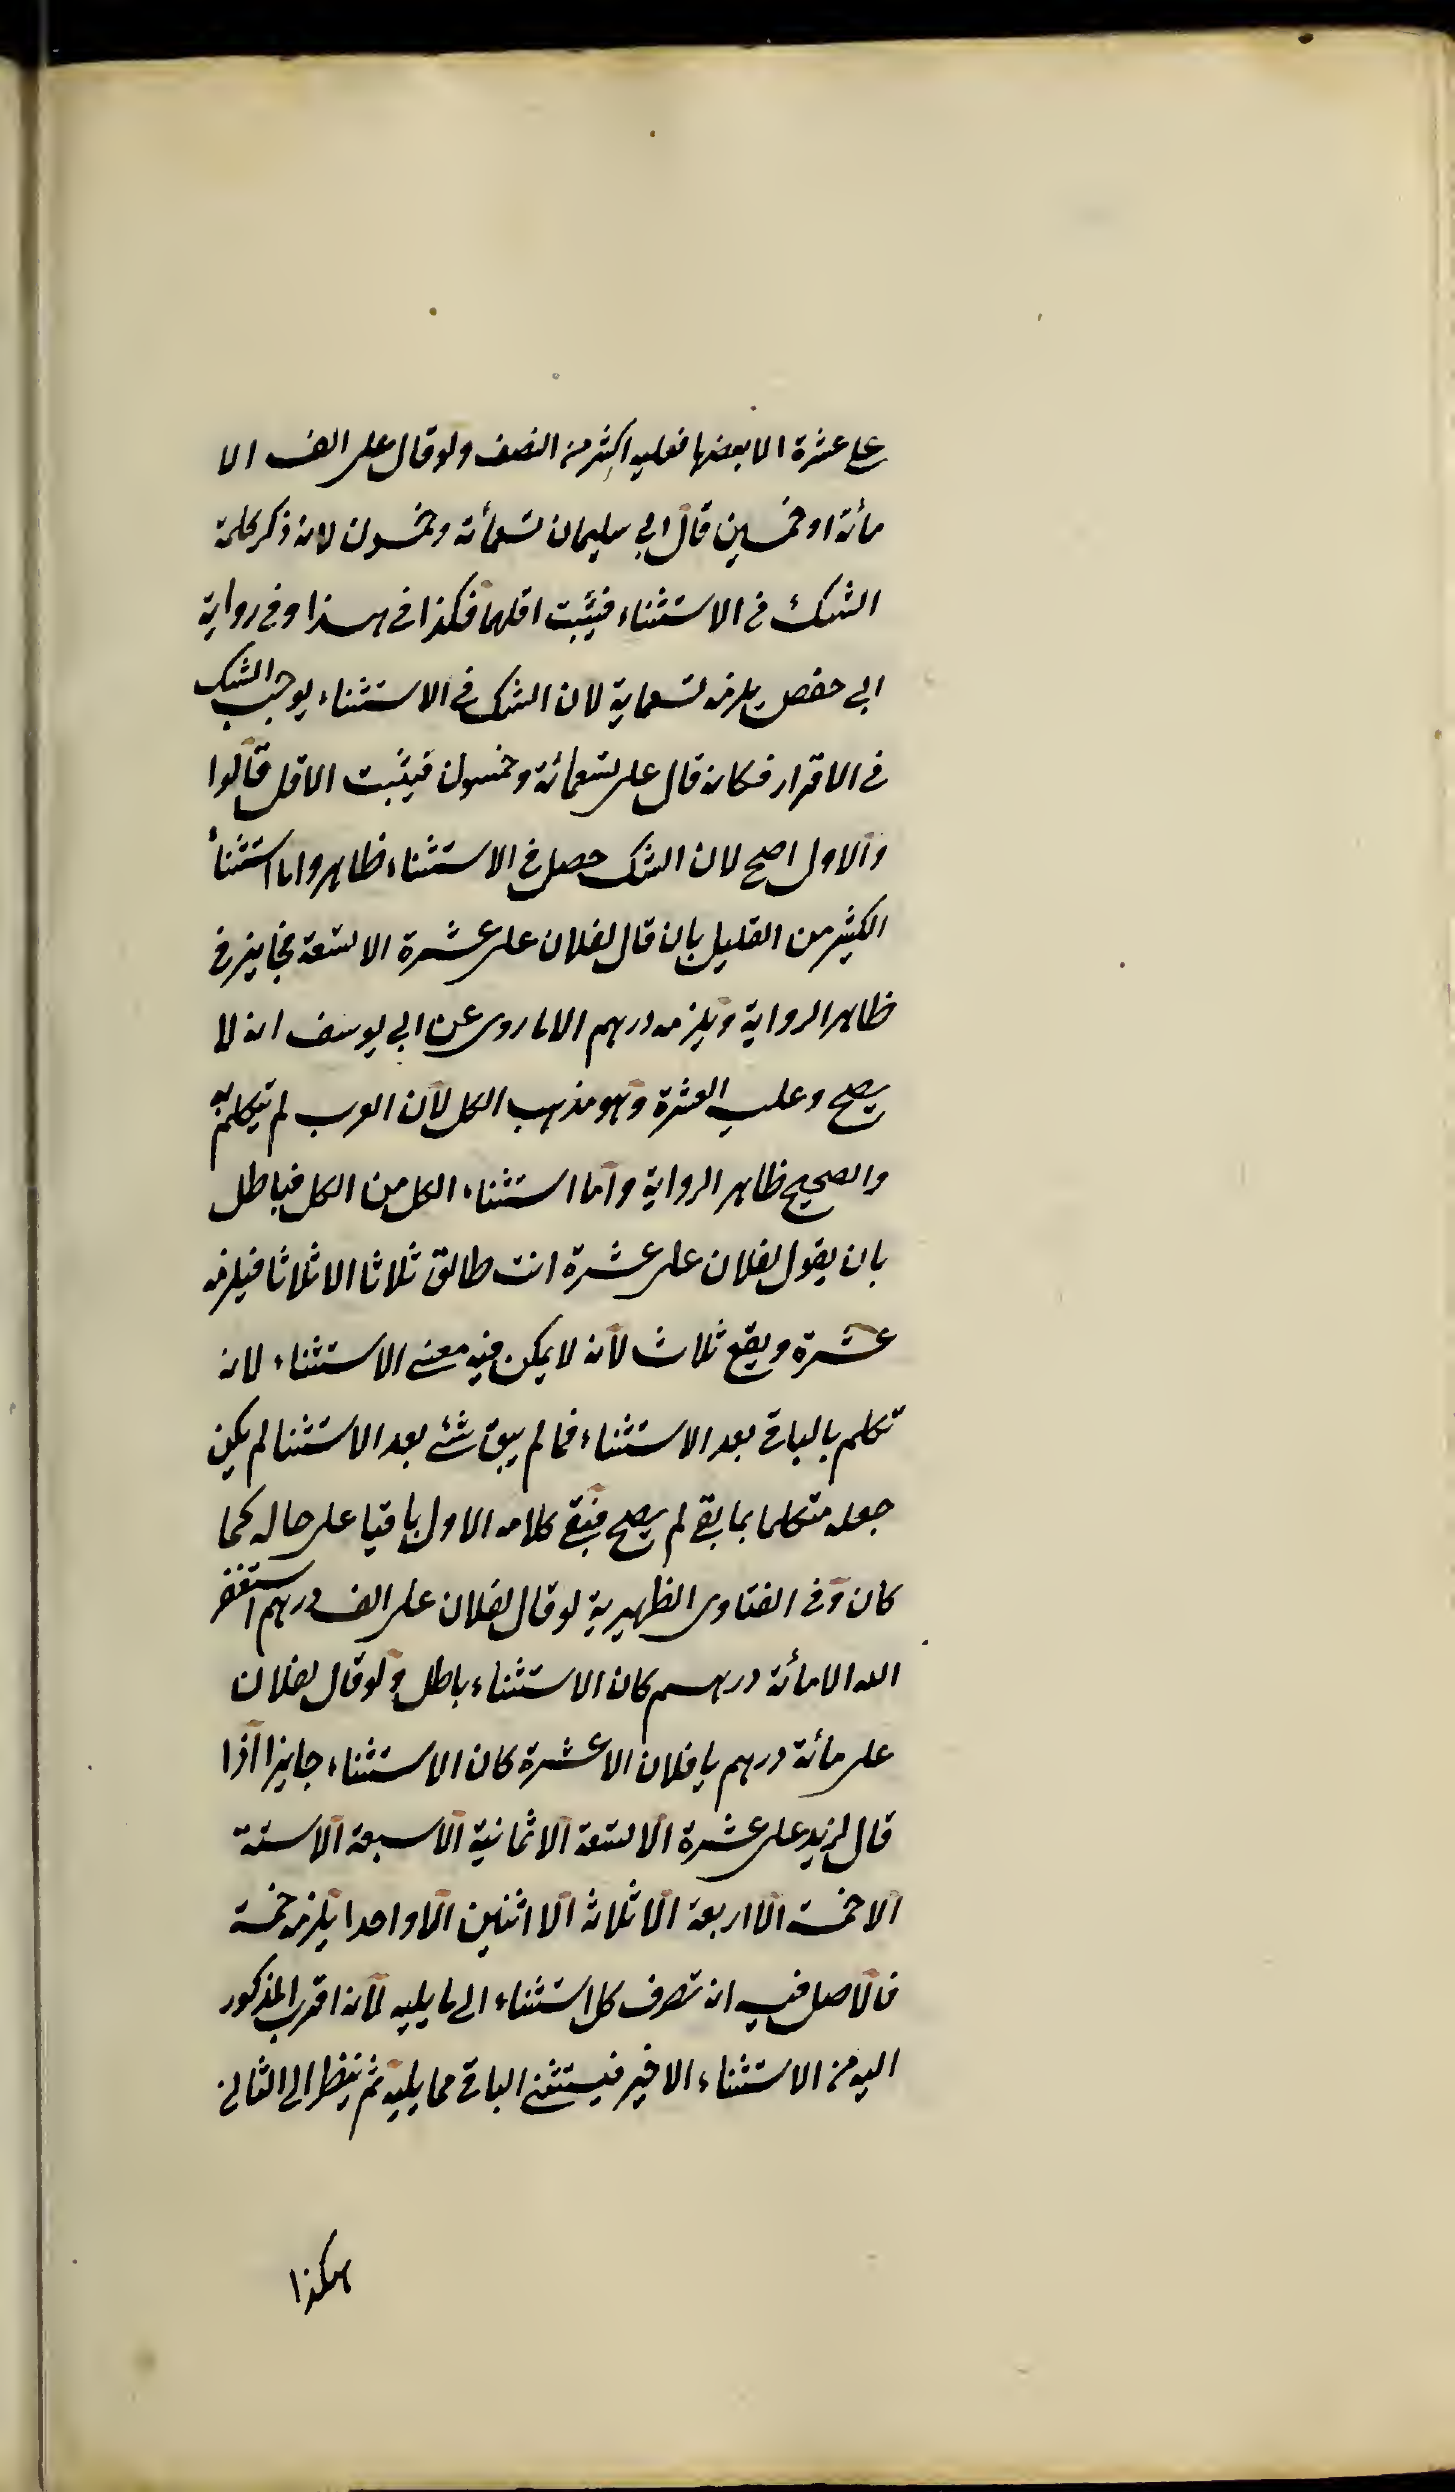 على عشرة الا بعضها فعليه اكثر من النصف ولو قال على الف الا
مأئة او خمسين قال ابى سليمان تسعمأئة وخمسون لانه ذكر كلمة
الشك فى الاستثناء فيثبت اقلهما فكذا فى هذا وفى رواية
ابى حفص يلزمه تسعماية لان الشك فى الاستثناء يوجب الشك
فى الاقرار فكانه قال على تسعمائة وخمسون فيثبت الاقل قالوا
والاول اصح لان الشك حصل فى الاستثناء ظاهر واما استثنأ
الكثير من القليل بان قال لفلان على عشرة الا تسعة فجايز فى
ظاهر الرواية ويلزمه درهم الا ما روى عن ابى يوسف انه لا
يصح وعليه العشرة وهو مذهب الكل لان العرب لم يتكلم به
والصحيح ظاهر الرواية واما استثناء الكل من الكل فباطل
بان يقول لفلان على عشرة انت طالق ثلاثا الا ثلاثا فيلزمه
عشرة ويقع ثلاث لانه لا يمكن فيه معنى الاستثناء لانه
تكلم بالباقى بعد الاستثناء فما لم يبق شئ بعد الاستثنا لم يكن
جعله متكلما بما بقى لم يصح فبقى كلامه الاول باقيا على حاله كما
كان وفى الفتاوى الظهيرية لو قال لفلان على الف درهم استغفر
الله الا مأئة درهم كان الاستثناء باطل ولو قال لفلان
على مأئة درهم يا فلان الا عشرة كان الاستثناء جايزا اذا
قال لزيد على عشرة الا تسعة الا ثمانية الا سبعة الا ستة
الا خمسة الا اربعة الا ثلاثة الا اثنين الا واحدا يلزمه خمسة
فالاصل فيه ان تصرف كل استثناء الى ما يليه لانه اقرب المذكور
اليه من الاستثناء الاخير فيستثنى الباقى مما يليه ثم ينظر الى الثانى
هكذا